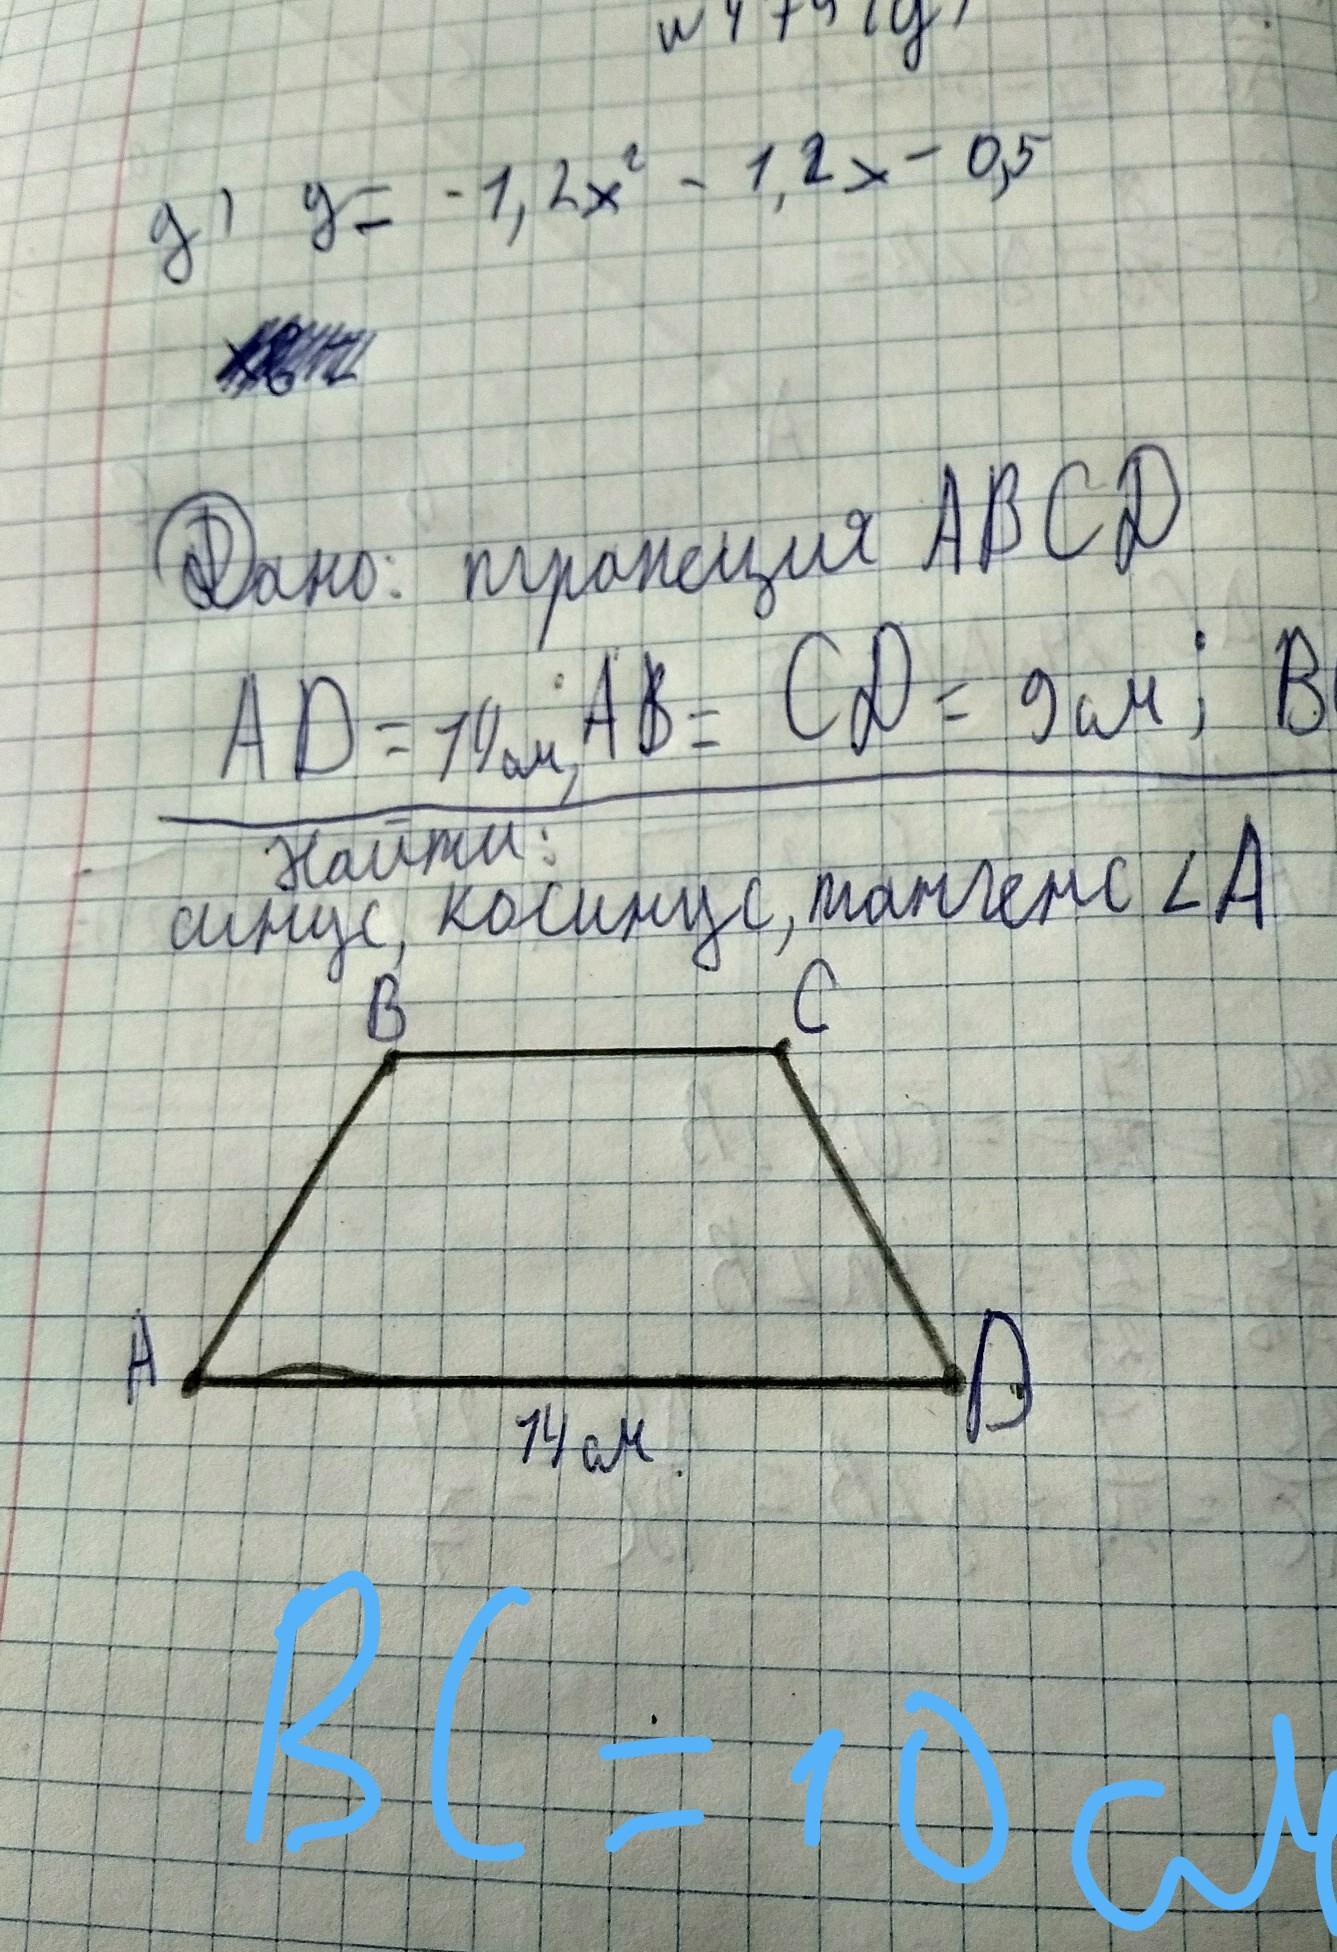 д) y = -1,2x² - 1,2x - 0,5
Дано: трапеция ABCD
AD = 14см, AB = CD = 9см; BC
Найти:
синус, косинус, тангенс ∠A
B C
A D
14см.
BC = 10 см